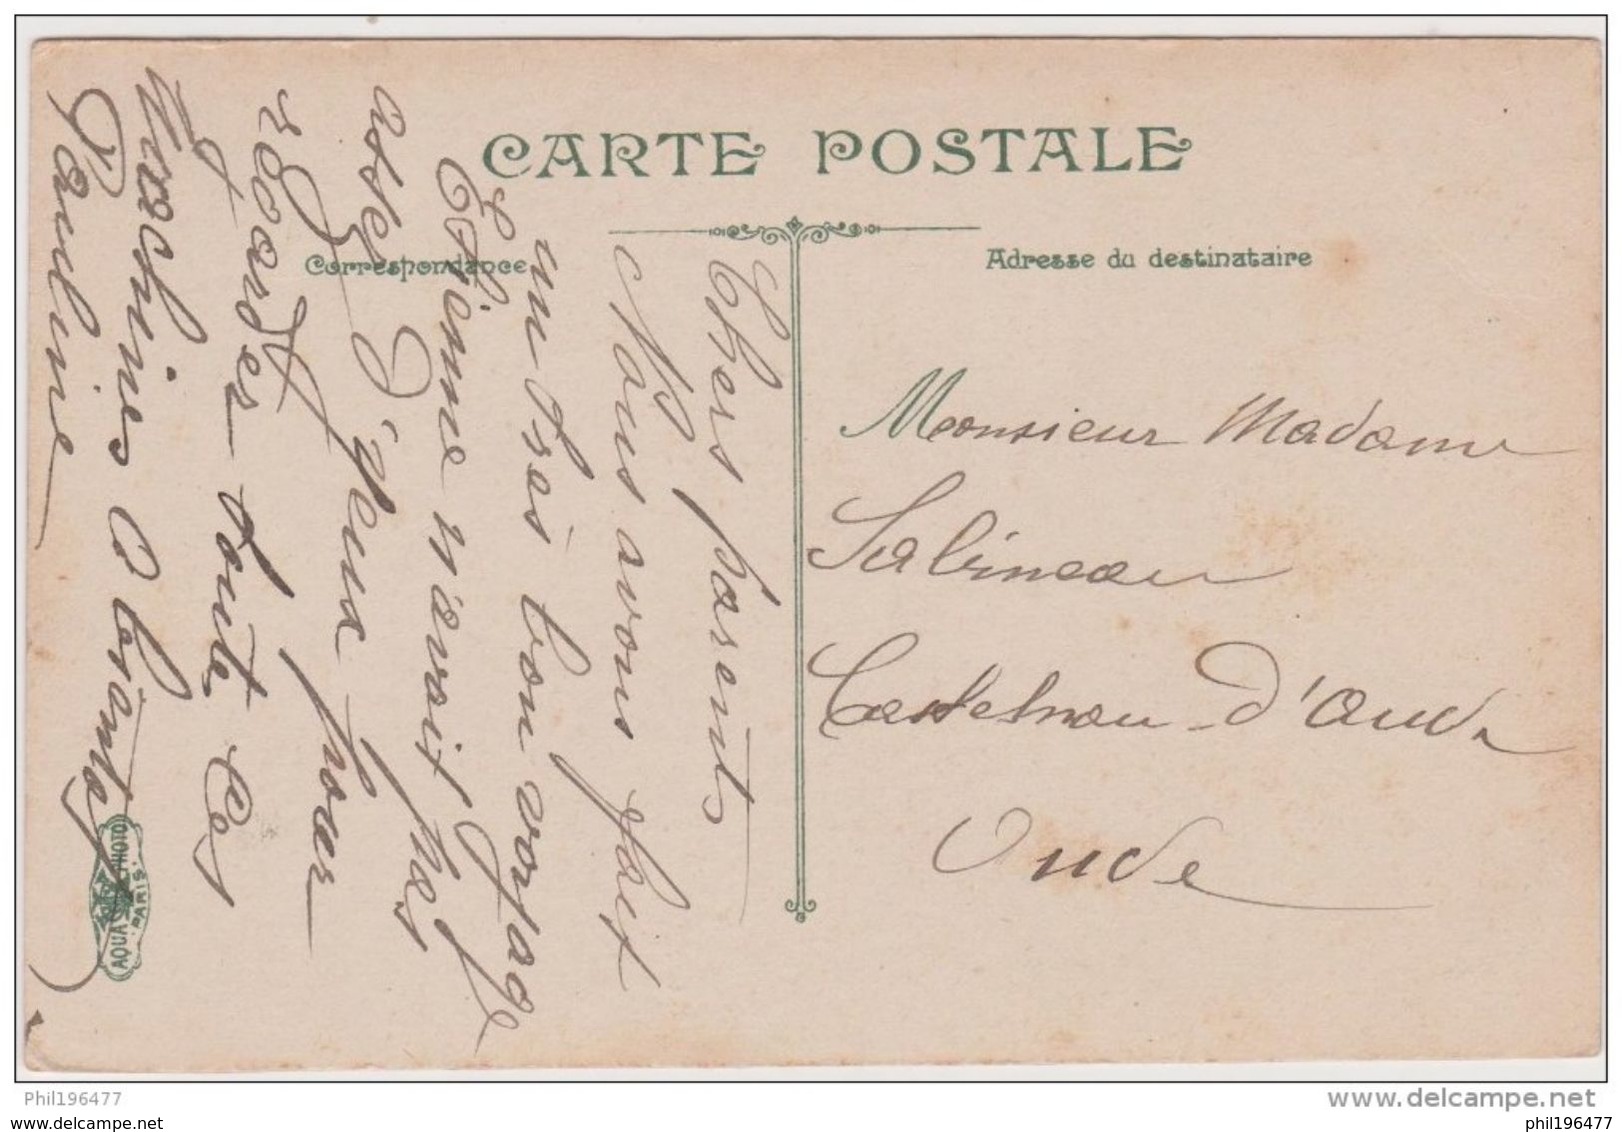 CARTE POSTALE
Correspondance
Adresse du destinataire
Chers parents
Nous avons fait
un tres bon voyage
Etienne n'avait pas
assez d'yeux pour
regarder toute ces
machines a bientot
Pauline
Monsieur Madame
Salvineau
Castelnau d'Aude
Aude
AQUA PHOTO
PARIS
Phil196477
www.delcampe.net
www.delcampe.net
phil196477